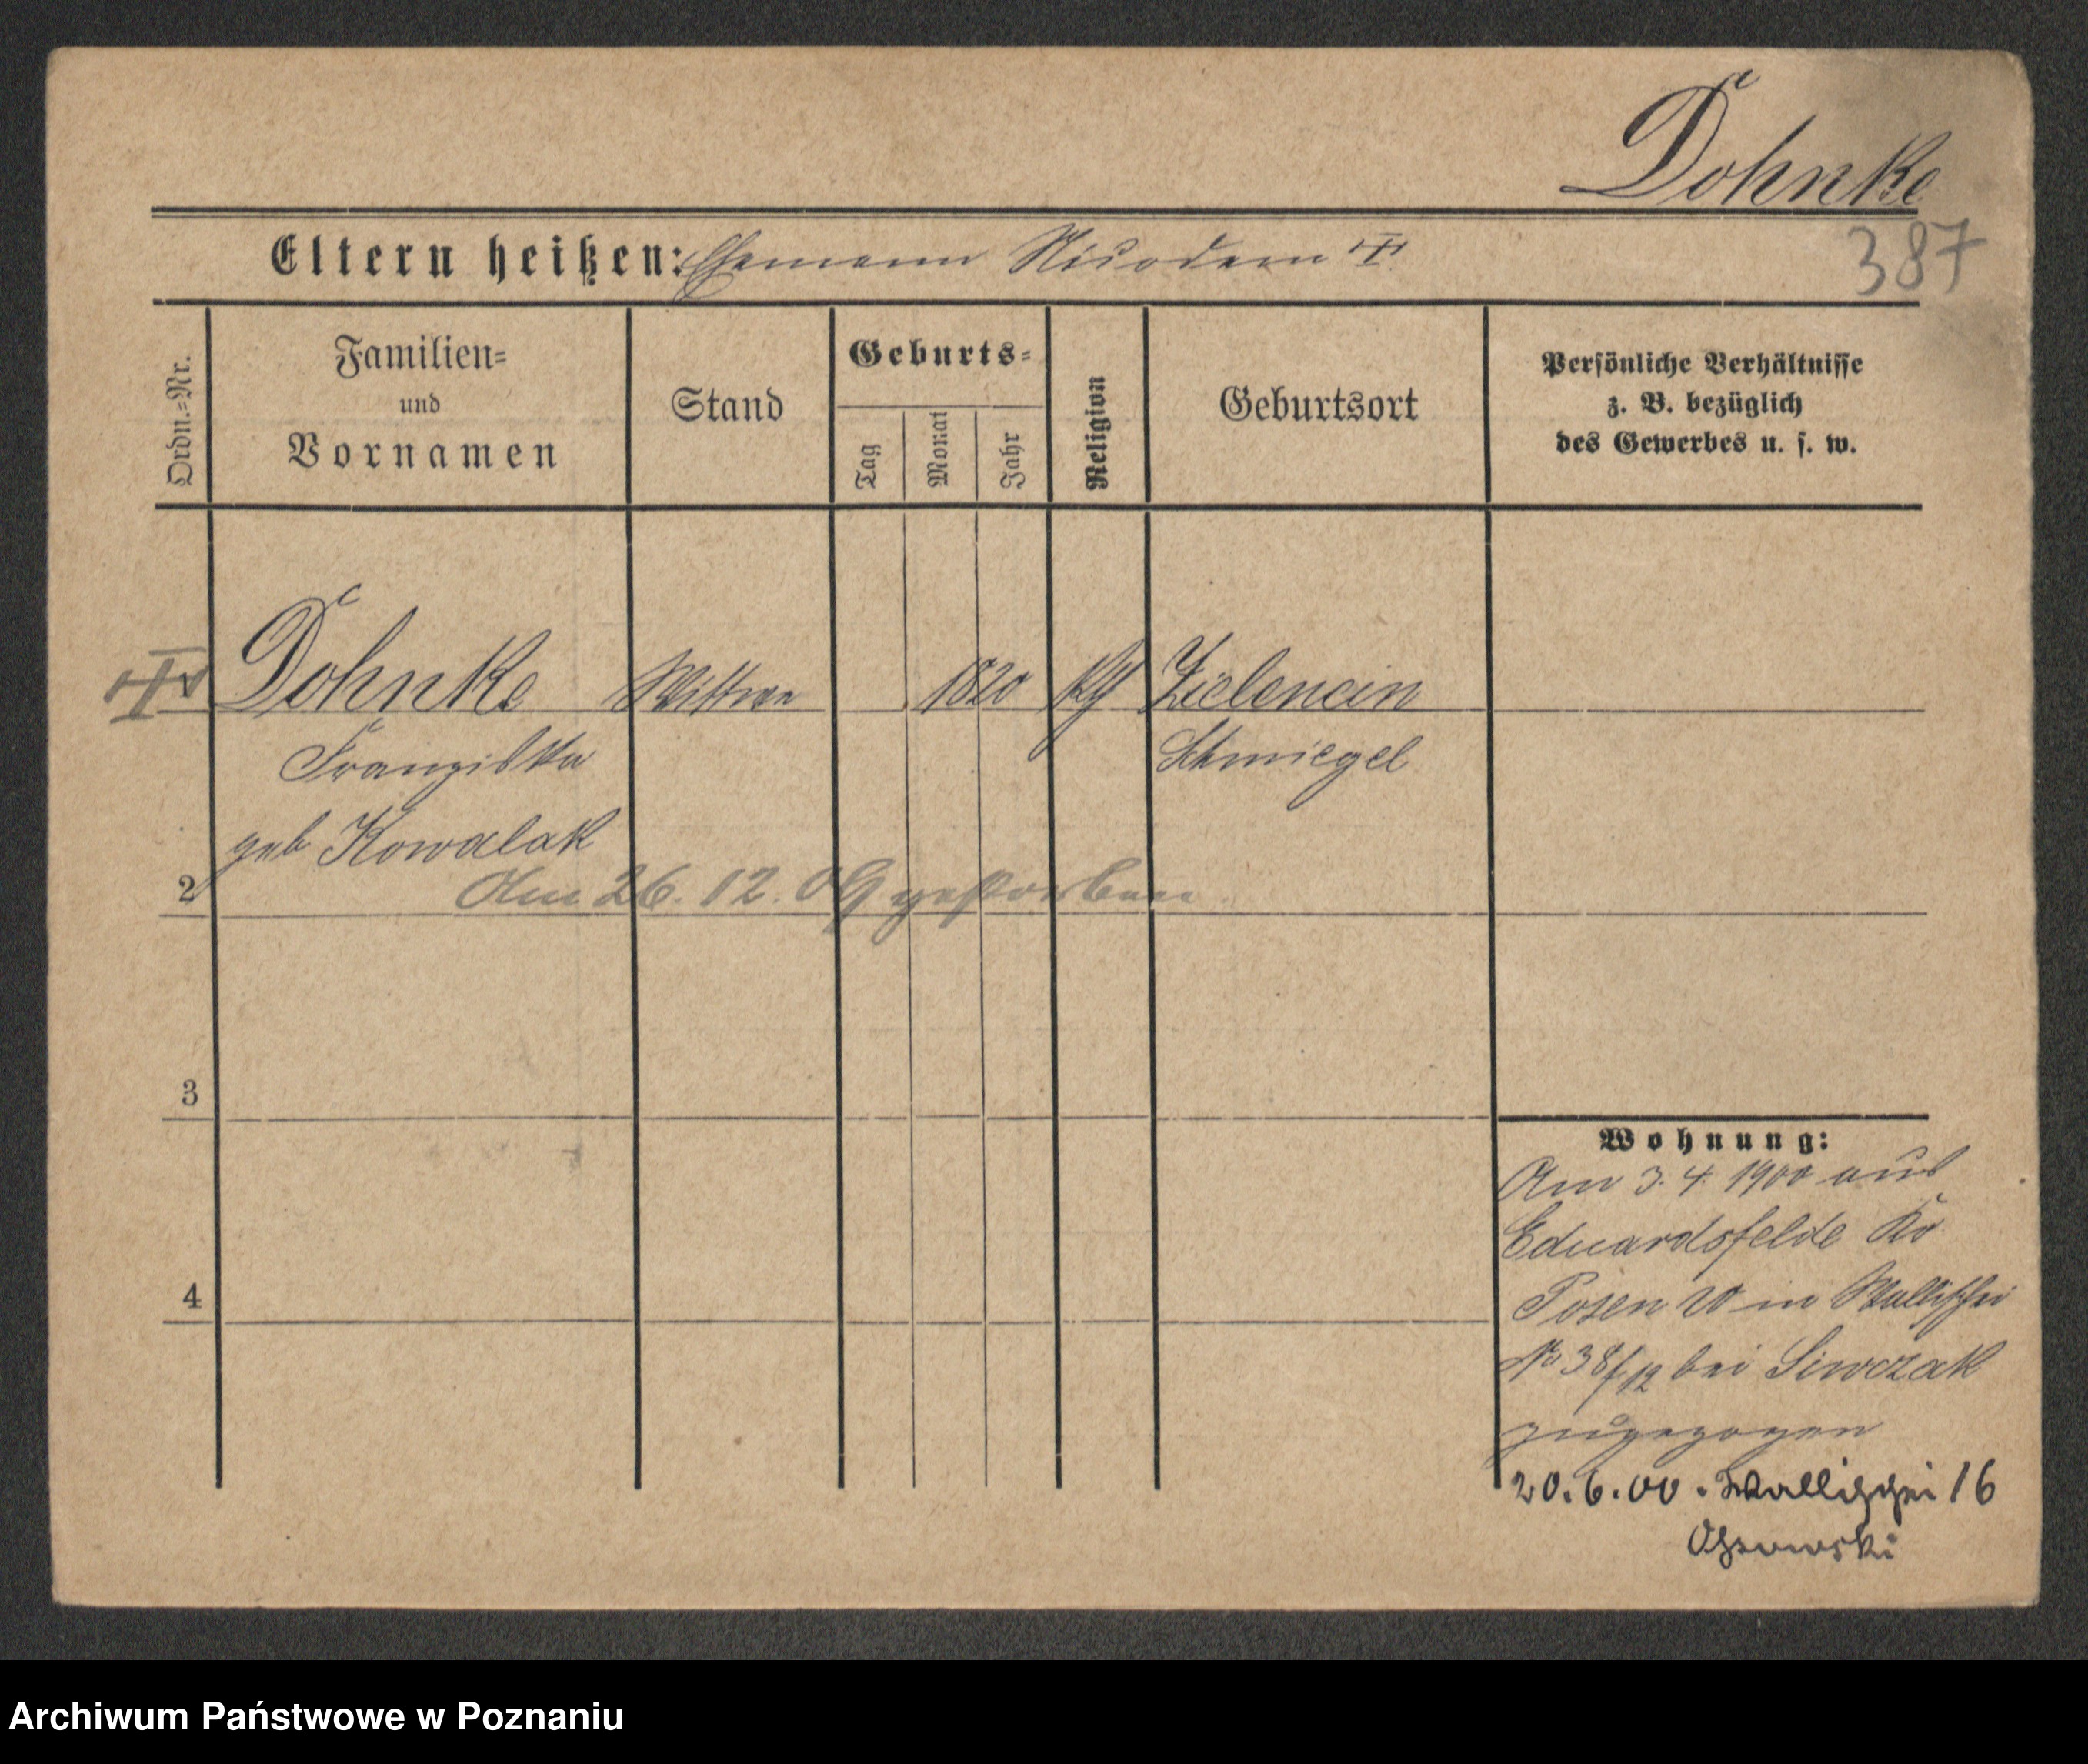 Dohnke
387
Eltern heißen: Ehemann Nicodem
Ordn.=Nr.
Familien=
und
Vornamen
Stand
Geburts=
Tag
Monat
Jahr
Religion
Geburtsort
Persönliche Verhältnisse
z. B. bezüglich
des Gewerbes u. s. w.
Dohnke Wittwe 1820 Zielencin
Franziska Schmiegel
geb Kowalak
2 Am 26.12.09 gestorben
3
4
Wohnung:
Am 3.4.1900 aus
Eduardsfelde Kr
Posen W in Wallischei
No 38/ 12 bei Siwczak
zugezogen
20.6.00. Wallischei 16
Ossowski
Archiwum Państwowe w Poznaniu